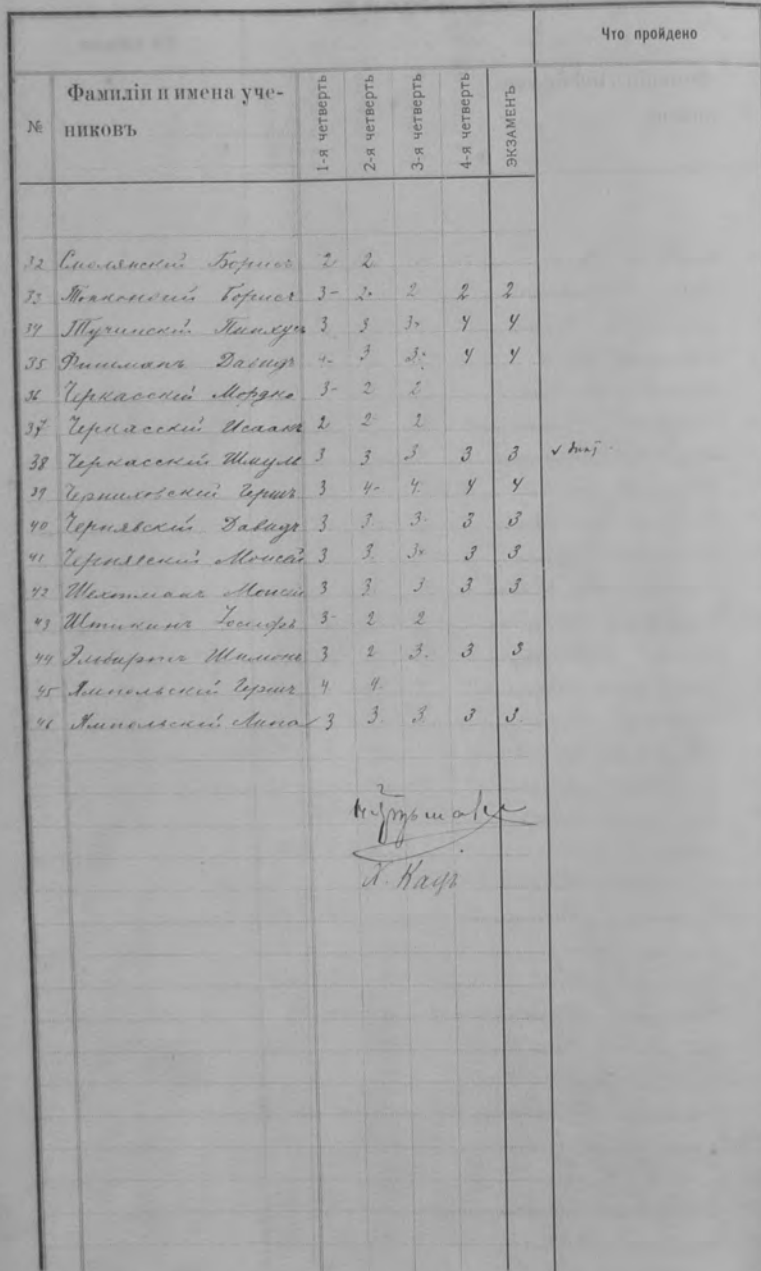 Что пройдено
№ Фамиліи и имена уче-
никовъ 1-я четверть 2-я четверть 3-я четверть 4-я четверть ЭКЗАМЕНЪ
32 Смолянскій Борисъ 2 2
33 Борисъ 3- 2 2 2
34 Тучинскій Пинхусъ 3 3 4 4
35 Давидъ 3 4 4
36 Черкасскій Мордко 3- 2 2
37 Черкасскій Исаакъ 2 2 2
38 Черкасскій Шмуль 3 3 3 3 3
39 Черниховскій Гершъ 3 4- 4 4 4
40 Чернявскій Давидъ 3 3 3 3 3
41 Чернявскій Моисей 3 3 3 3
42 Шехтманъ Моисей 3 3 3 3 3
43 Іосифъ 3- 2 2
44 Шимонъ 3 2 3. 3 3
45 Ямпольскій Гершъ 4 4
46 Ямпольскій Липа 3 3 3 3 3
Кацъ